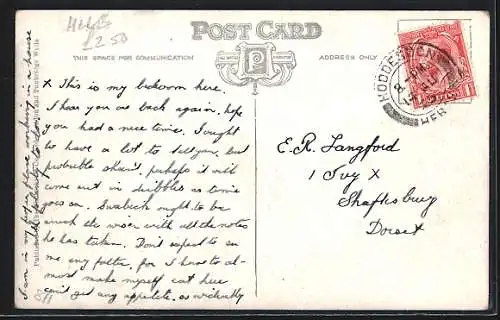 Herts
£2.50
POST CARD
THIS SPACE FOR COMMUNICATION
ADDRESS ONLY
HODDESDON
HER
x This is my bedroom here.
I hear you are back again, hope
you had a nice time. I ought
to have a lot to tell you, but
probable shan't, perhaps it will
come out in dribbles as time
goes on. Swabick ought to be
much the wiser with all the notes
he has taken. Don't expect to see
me any fatter, for I have to al-
most make myself eat here
can't get any appetite, as evidently
I am in my place working in a house
E.R. Langford
1 Ivy X
Shaftsbury
Dorset